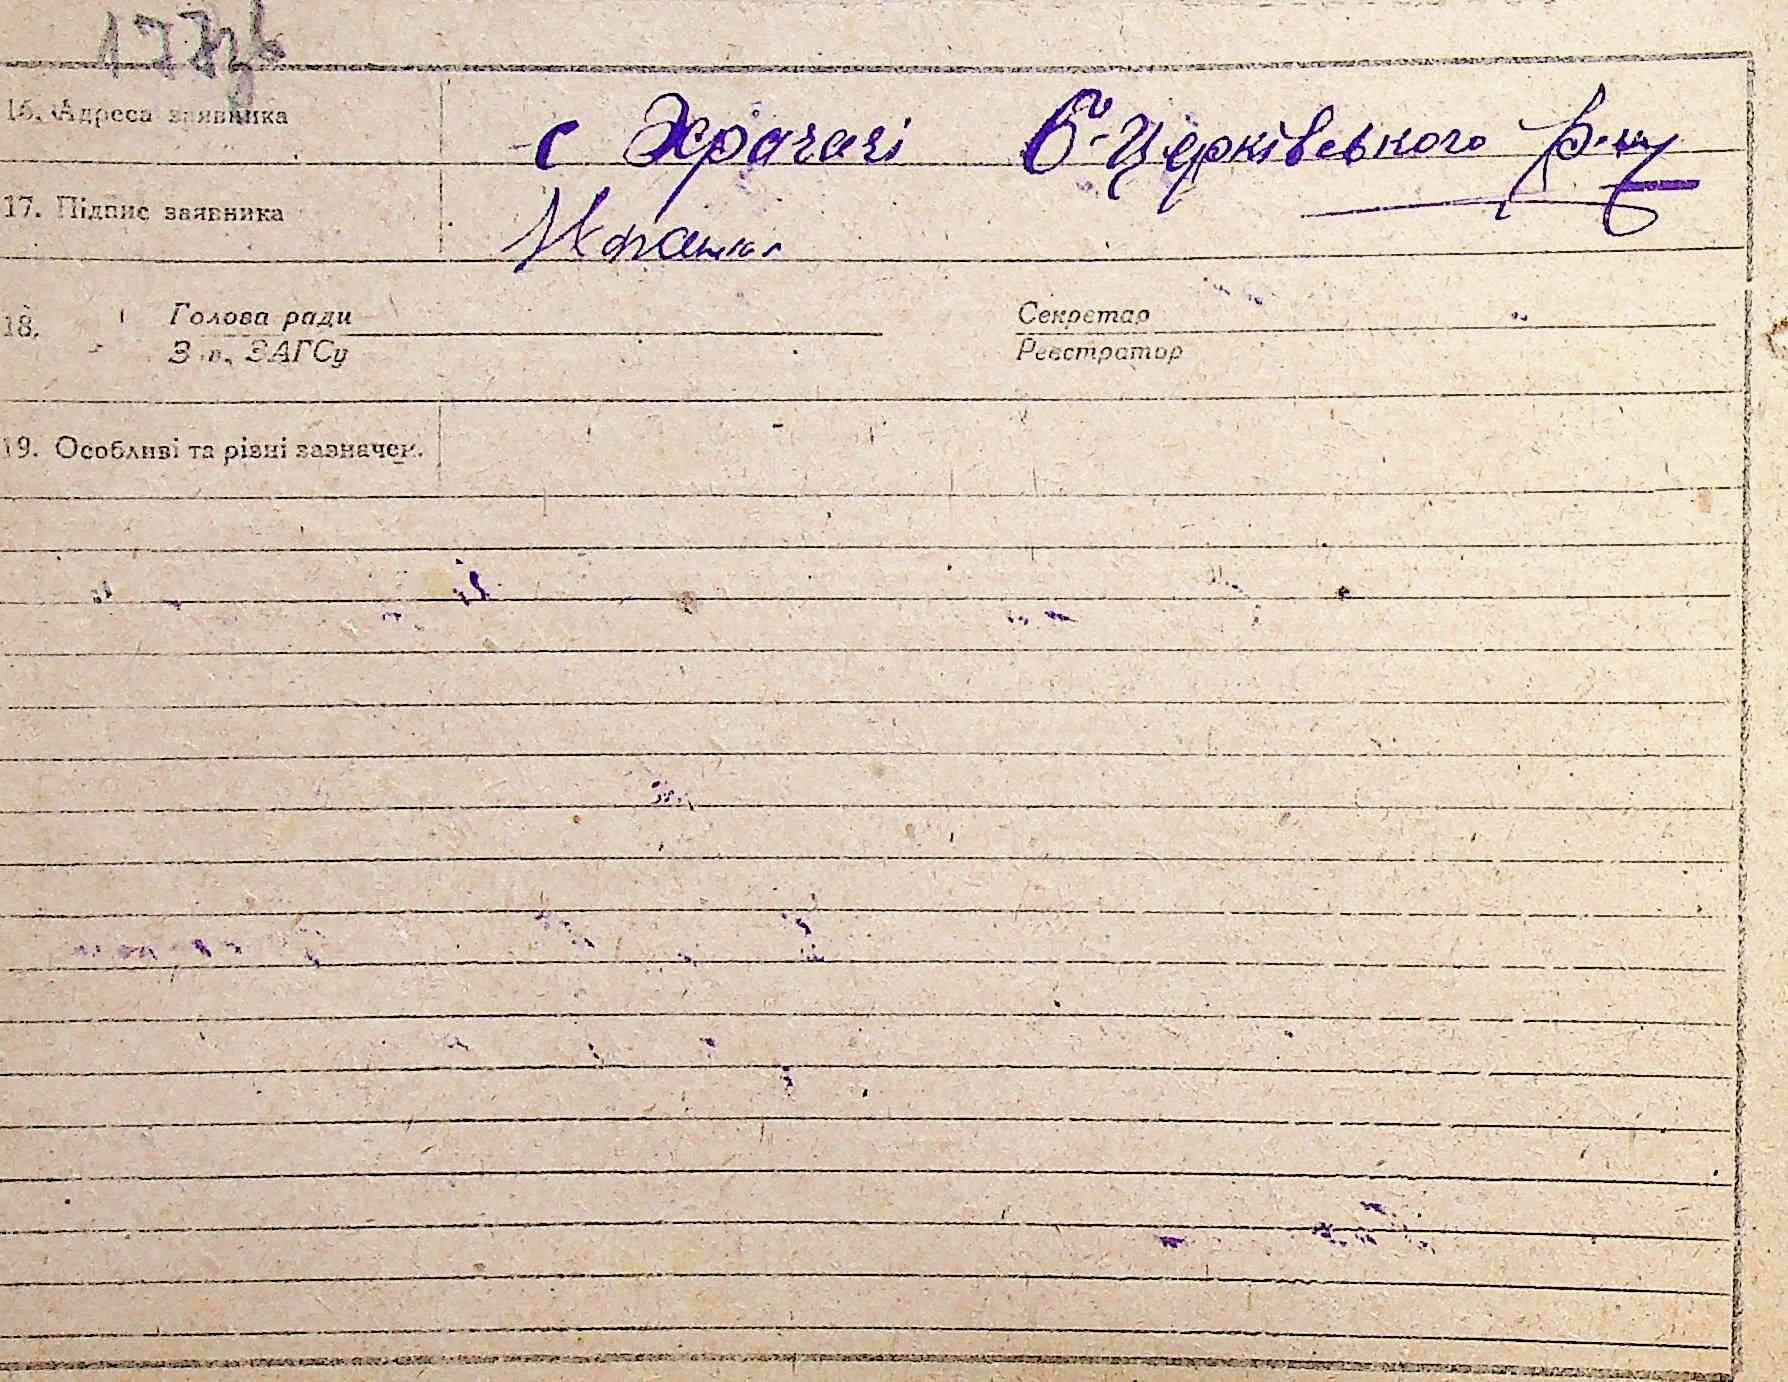 16. Адреса заявника с Храчачі Б-Церківського р-ну
17. Підпис заявника
18. Голова ради Секретар
Зав. ЗАГСу Реєстратор
19. Особливі та різні зазначен.